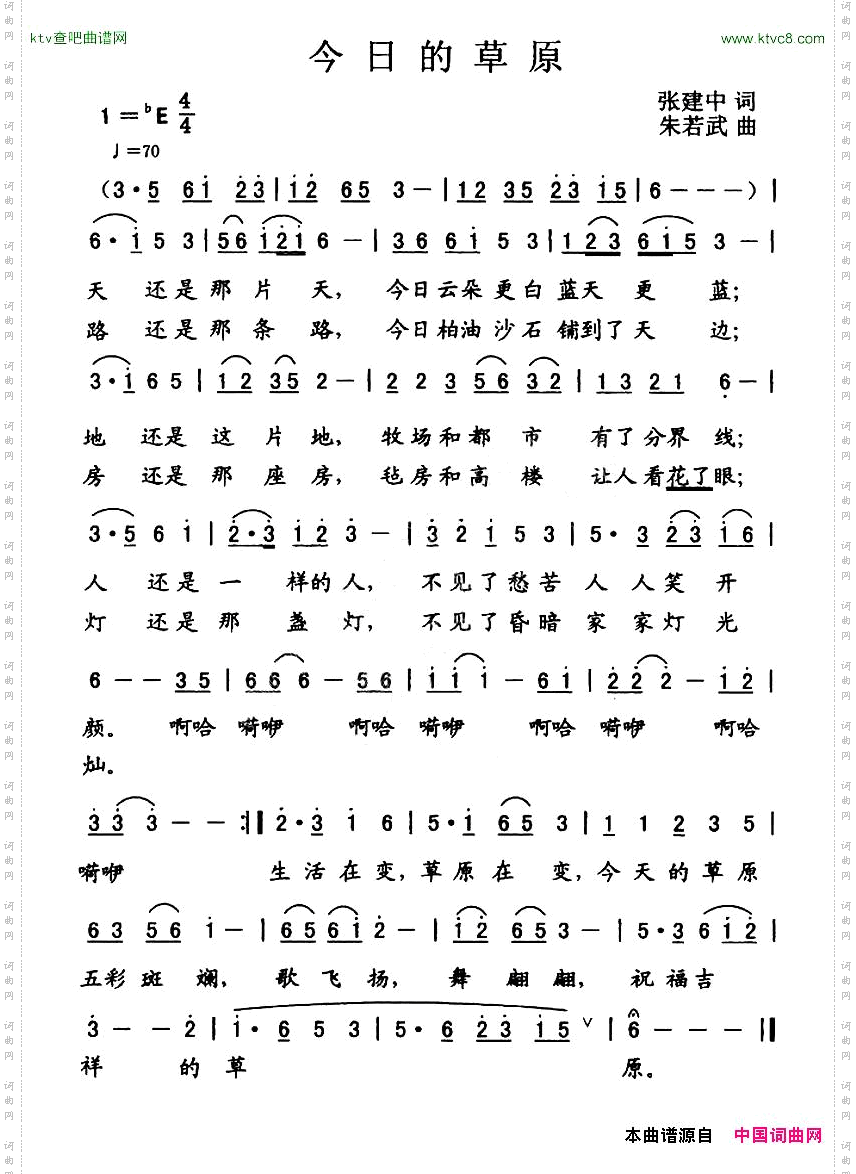 ktv查吧曲谱网
www.ktvc8.com
今日的草原
1=♭E 4/4
张建中 词
朱若武 曲
♩=70
(3·5 61 23|12 65 3—|12 35 23 15|6———)|
6·1 5 3|56 121 6—|36 61 5 3|123 615 3—|
天 还是那片天, 今日云朵更白蓝天更蓝;
路 还是那条路, 今日柏油沙石铺到了天边;
3·1 6 5|12 35 2—|2 2 3 56 32|1 3 21 6—|
地 还是这片地, 牧场和都市 有了分界线;
房 还是那座房, 毡房和高楼 让人看花了眼;
3·5 6 1|2·3 12 3—|3 2 1 5 3|5·3 23 16|
人 还是一样的人, 不见了愁苦人人笑开
灯 还是那盏灯, 不见了昏暗家家灯光
6——35|66 6—56|11 1—61|22 2—12|
颜。 啊哈 嗬咿 啊哈 嗬咿 啊哈 嗬咿 啊哈
灿。
33 3——:‖2·3 1 6|5·1 65 3|1 1 2 3 5|
嗬咿 生活在变,草原在变,今天的草原
63 56 1—|65 61 2—|12 65 3—|5·3 6 12|
五彩斑斓, 歌飞扬, 舞翩翩, 祝福吉
3——2|1·6 5 3|5·6 23 15∨|6———‖
祥 的草 原。
本曲谱源自 中国词曲网